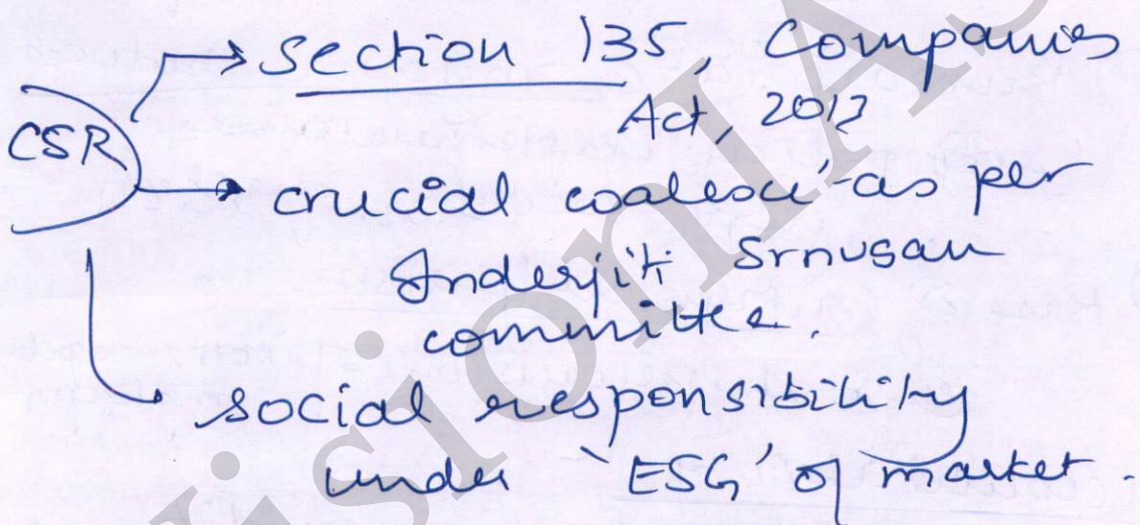 CSR
→ section 135, Companies
Act, 2013
→ crucial coalesce' as per
Inderjit Srnusan
committe.
social responsibility
under 'ESG' of market.
VisionIAS